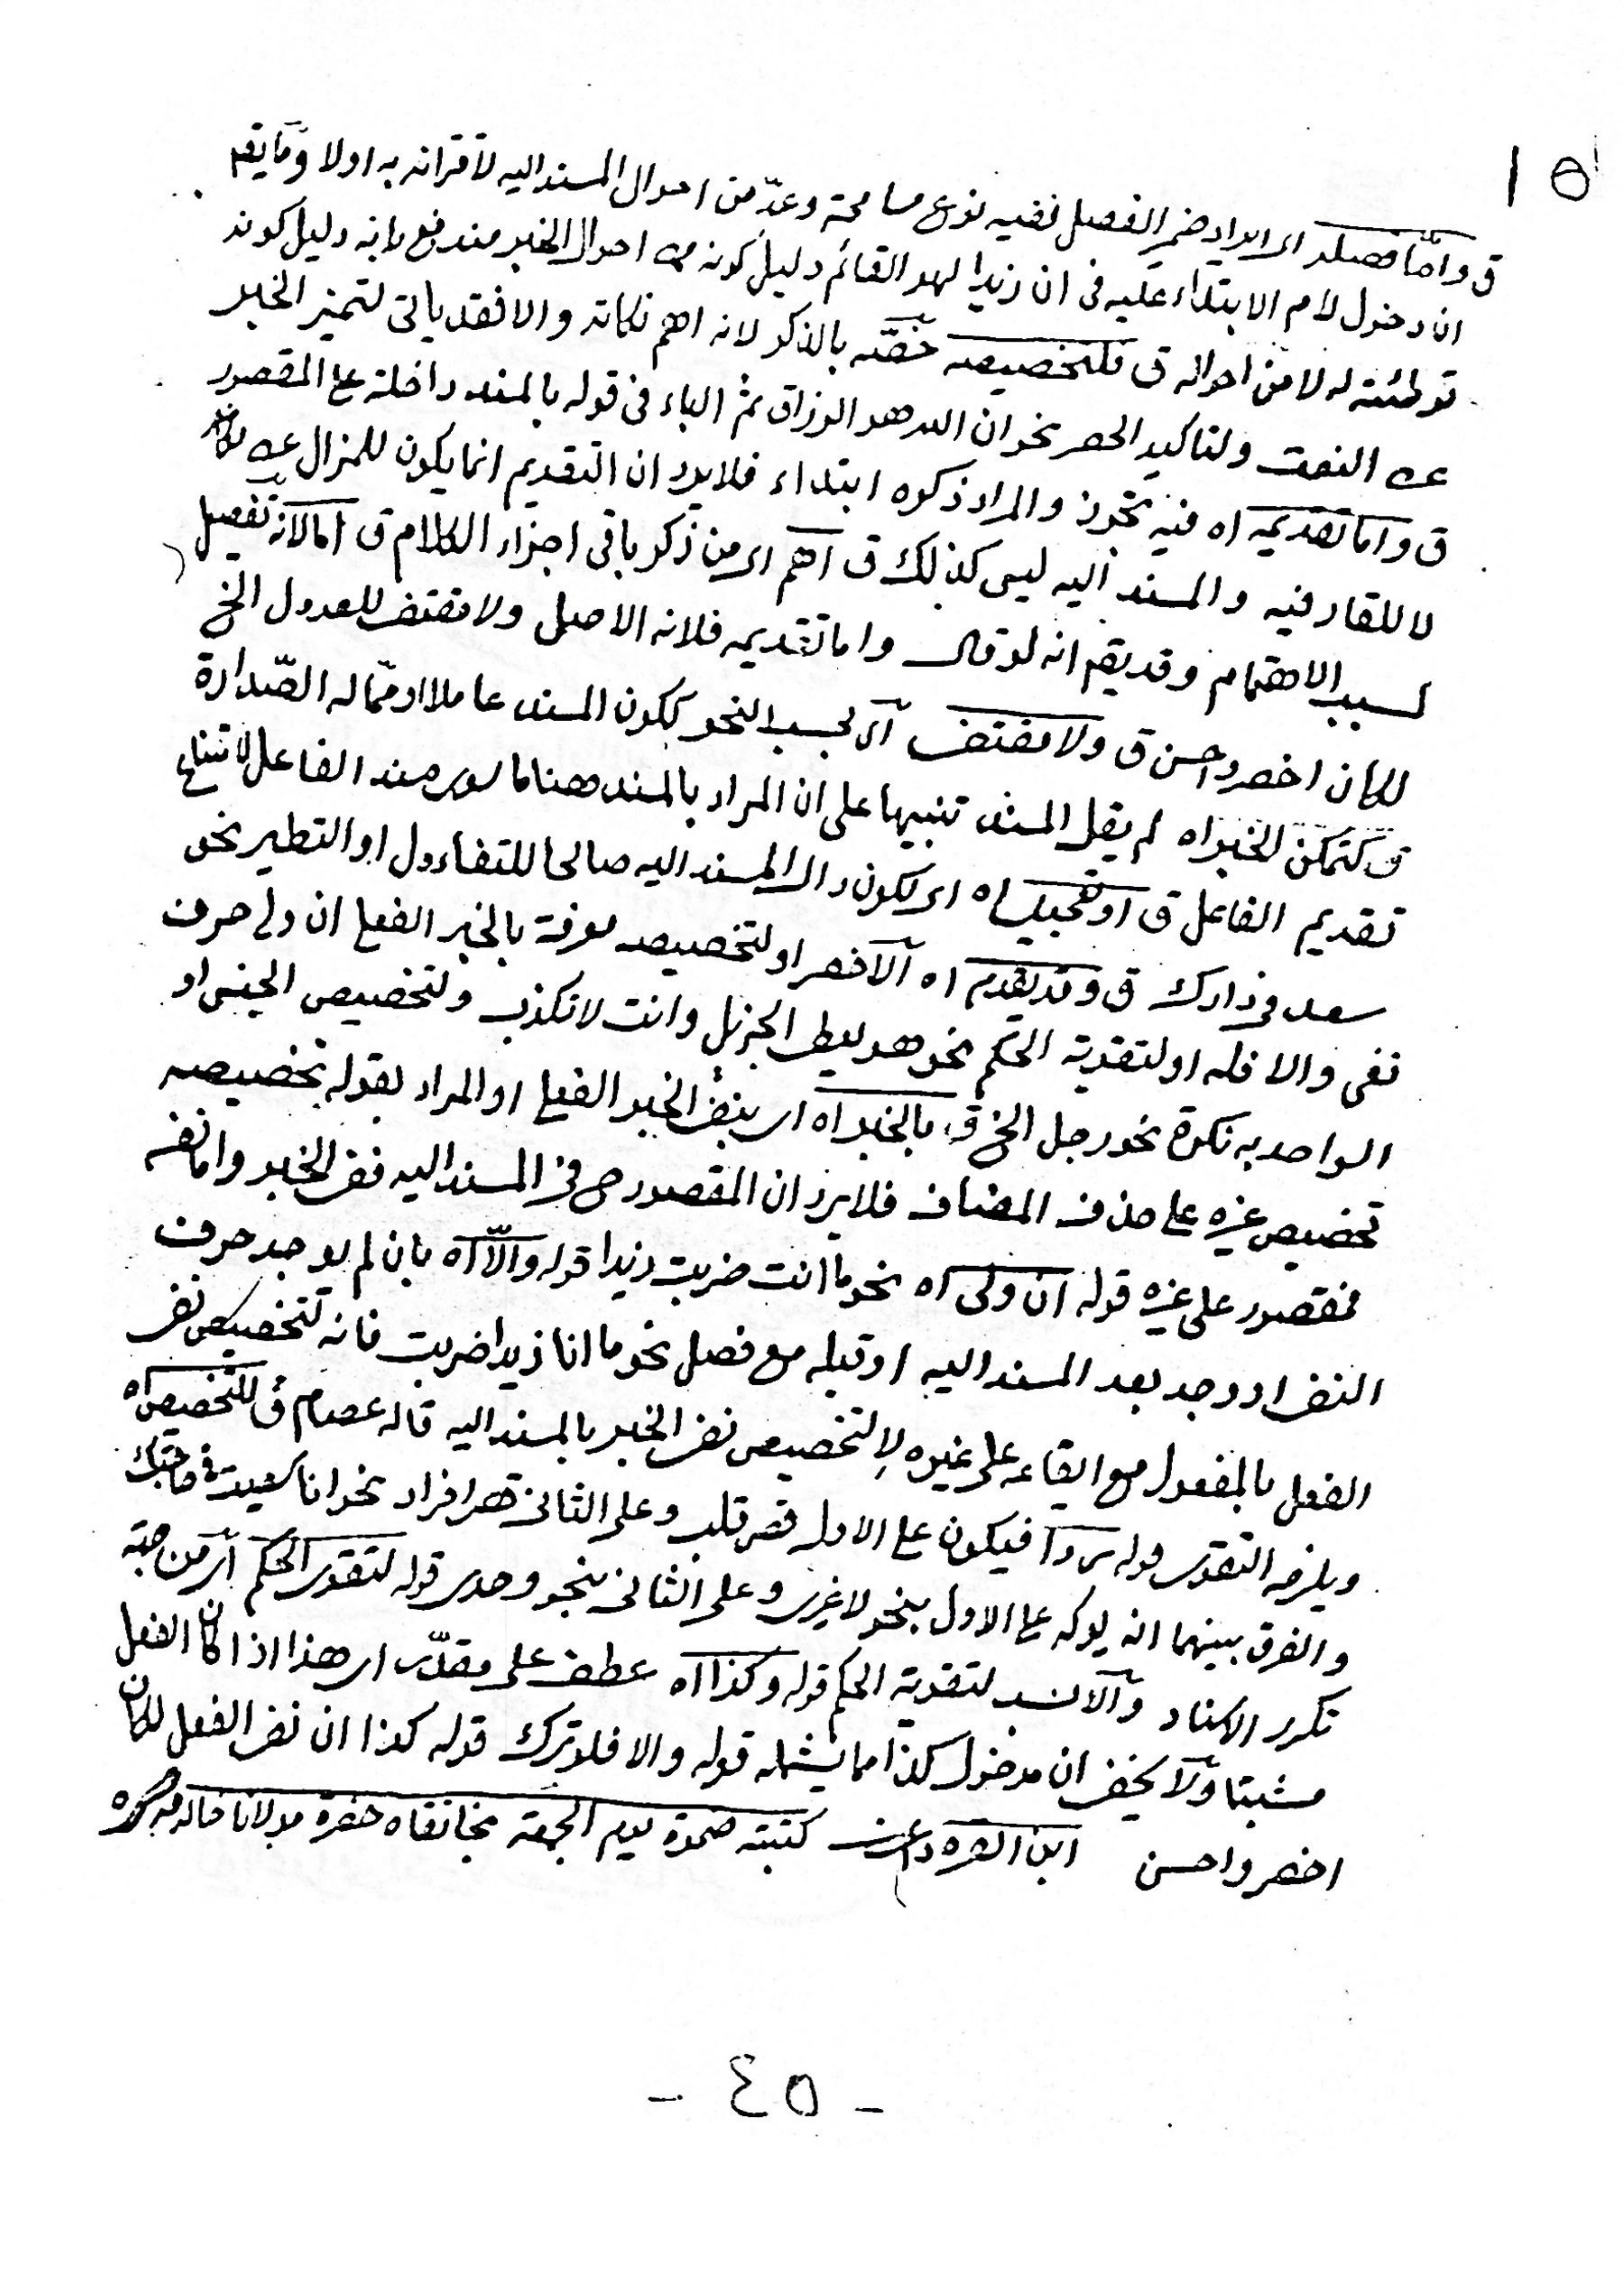 ١٥
ق واما فصله اى ايراد ضمير الفصل ففيه نوع مسامحة وعدّ من احوال المسند اليه لاقترانه به اولا وما يقم
ان دخول لام الابتداء عليه فى ان زيدا لهو القائم دليل كونه من احوال الخبر مندفع بانه دليل كونه
توطئته له لا من احواله ق فلتخصيصه خصّه بالذكر لانه اهم نكاته والا فقد ياتى لتميز الخبر
عن النعت ولتاكيد الحصر نحو ان الله هو الرزاق ثم الباء فى قوله بالمسند داخلة على المقصور
ق واما تقديمه اه فيه تجوز والمراد ذكره ابتداء فلا يرد ان التقديم انما يكون للمزال عن مكانه
لا للقار فيه والمسند اليه ليس كذلك ق اهم اى من ذكر باقى اجزاء الكلام ق اما لانه تفصيل
لسبب الاهتمام وقد يقم انه لو قال واما تقديمه فلانه الاصل ولا مقتض للعدول الخ
لكان اخصر واحسن ق ولا مقتض اى بحسب النحو ككون المسند عاملا او مما له الصّدارة
ق كتمكن الخبر اه لم يقل المسند تنبيها على ان المراد بالمسند ههنا ما سوى مسند الفاعل لامتناع
تقديم الفاعل ق او تعجيل اه اى لكون دال المسند اليه صالحا للتفاءول او التطير نحو
سعد فى دارك ق وقد يقدم اه الاخصر او لتخصيصه معرفة بالخبر الفعلى ان ولى حرف
نفى والا فله او لتقوية الحكم نحو هو يعطى الجزيل وانت لا تكذب ولتخصيص الجنس او
الواحد به نكرة نحو رجل الخ ق بالخبر اه اى بنفى الخبر الفعلى او المراد بقوله تخصيصه
تخصيص غيره على حذف المضاف فلا يرد ان المقصور فى المسند اليه نفى الخبر واما نفسه
فمقصور على غيره قوله ان ولى اه نحو ما انت ضربت زيدا قوله والّا اه بان لم يوجد حرف
النفى او وجد بعد المسند اليه او قبله مع فصل نحو ما انا زيدا ضربت فانه لتخصيص نفى
الفعل بالمفعول مع ايقاعه على غيره لا لتخصيص نفى الخبر بالمسند اليه قاله عصام ق للتخصيص اه
ويلزمه التقوى قوله ردا فيكون على الاول قصر قلب وعلى الثانى قصر افراد نحو انا سعيت فى حاجتك
والفرق بينهما انه يؤكد على الاول بنحو لا غيرى وعلى الثانى بنحو وحدى قوله لتقوى الحكم اى من جهة
تكرر الاسناد والانسب لتقوية الحكم قوله وكذا اه عطف على مقدّر اى هذا اذا كان الفعل
مثبتا ولا يخفى ان مدخول كذا مما يشمله قوله والا فلو ترك قوله كذا ان نفى الفعل لكان
اخصر واحسن ابن القره داغى كتبته ضحوة يوم الجمعة بخانقاه حضرة مولانا خالد
- ٤٥ -